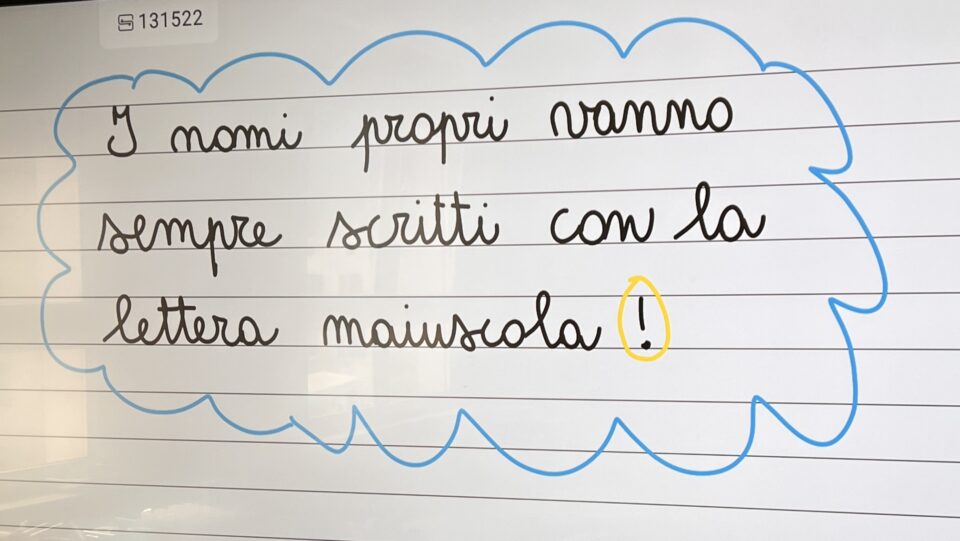 131522
I nomi propri vanno
sempre scritti con la
lettera maiuscola !